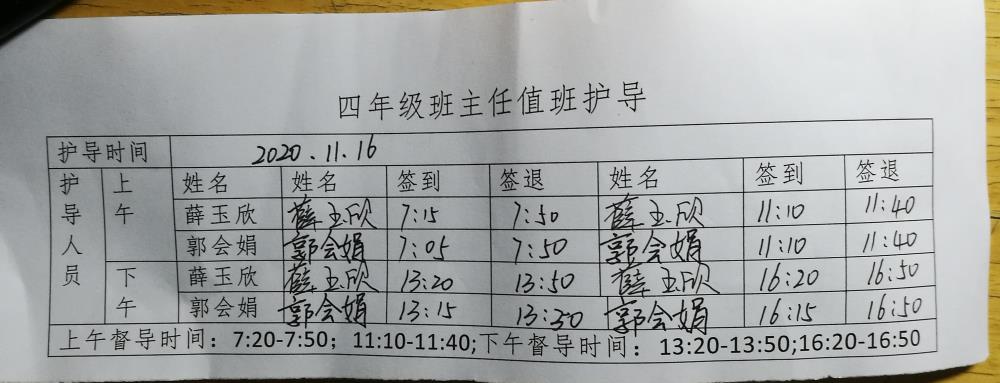 四年级班主任值班护导
护导时间 2020.11.16
护导人员 上午 姓名 姓名 签到 签退 姓名 签到 签退
薛玉欣 薛玉欣 7:15 7:50 薛玉欣 11:10 11:40
郭会娟 郭会娟 7:05 7:50 郭会娟 11:10 11:40
下午 薛玉欣 薛玉欣 13:20 13:50 薛玉欣 16:20 16:50
郭会娟 郭会娟 13:15 13:50 郭会娟 16:15 16:50
上午督导时间：7:20-7:50；11:10-11:40;下午督导时间：13:20-13:50;16:20-16:50